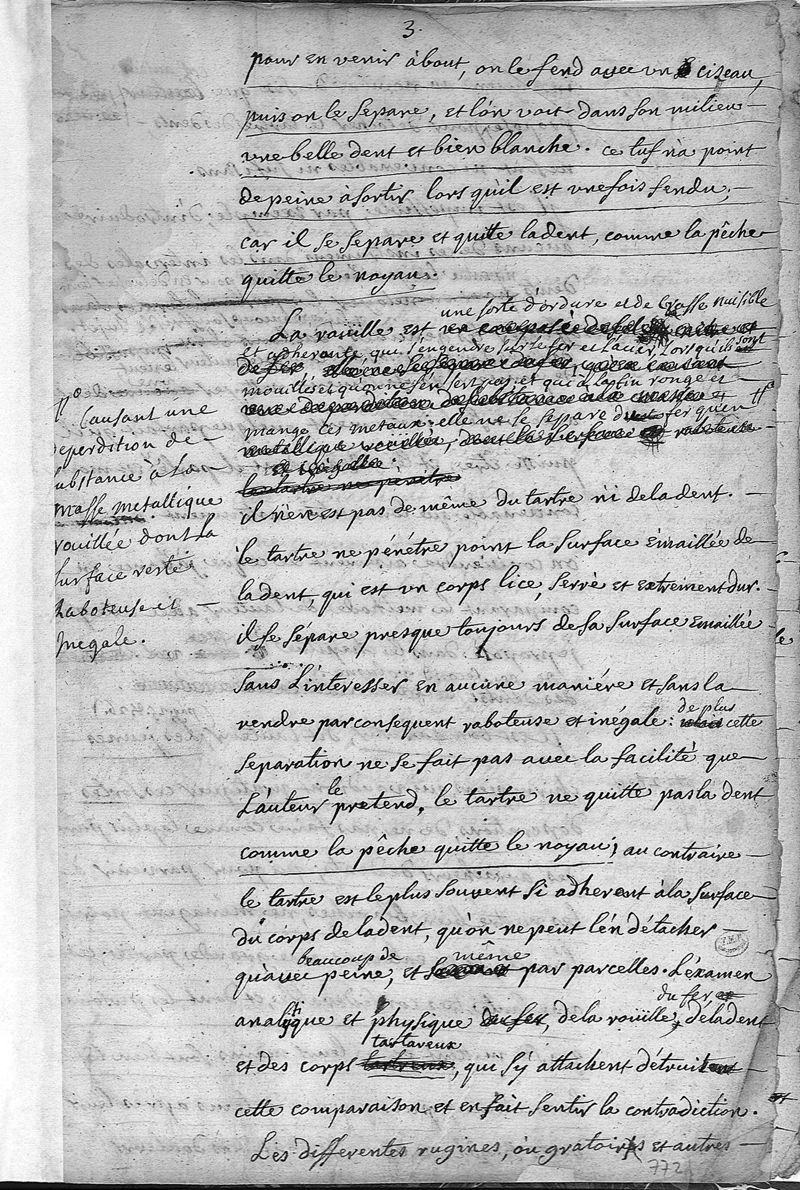 3.
pour en venir àbout, on le fend avec un ciseau,
puis on le sépare, et l'on voit dans son milieu
une belle dent et bien blanche. ce tuf n'a point
de peine à sortir lorsqu'il est une fois fendu,
car il se separe et quitte la dent, comme la pêche
quitte le noyau.
une sorte d'ordure et de crasse nuisible
La roüille est
et adherente, qui s'engendre sur le fer et l'acier, Lorsquils sont
mouillés et qu'on ne s'en sert pas, et qui à la fin ronge et
mange ces metaux: elle ne se separe du fer qu'en
Causant une
deperdition de
substance à la
masse metallique
rouillée dont la
surface reste
raboteuse et
inegale.
il n'en est pas de même du tartre ni de la dent.
le tartre ne pénétre point la surface émaillée de
la dent, qui est un corps lice, serré et extrement dur.
il se sépare presque toujours de sa surface emaillée
sans l'interesser en aucune maniére et sans la
rendre par consequent raboteuse et inégale: de plus cette
separation ne se fait pas avec la facilité que
L'auteur le pretend. le tartre ne quitte pas la dent
comme la pêche quitte le noyau; au contraire
le tartre est le plus souvent si adherent à la surface
du corps de la dent, qu'on ne peut l'en détacher
qu'avec beaucoup de peine, et même par parcelles. L'éxamen
analitique et physique du fer, de la roüille, de la dent
et des corps tartareux, qui s'y attachent détruit
cette comparaison et en fait sentir la contradiction.
Les differentes rugines, ou gratoirs et autres
772